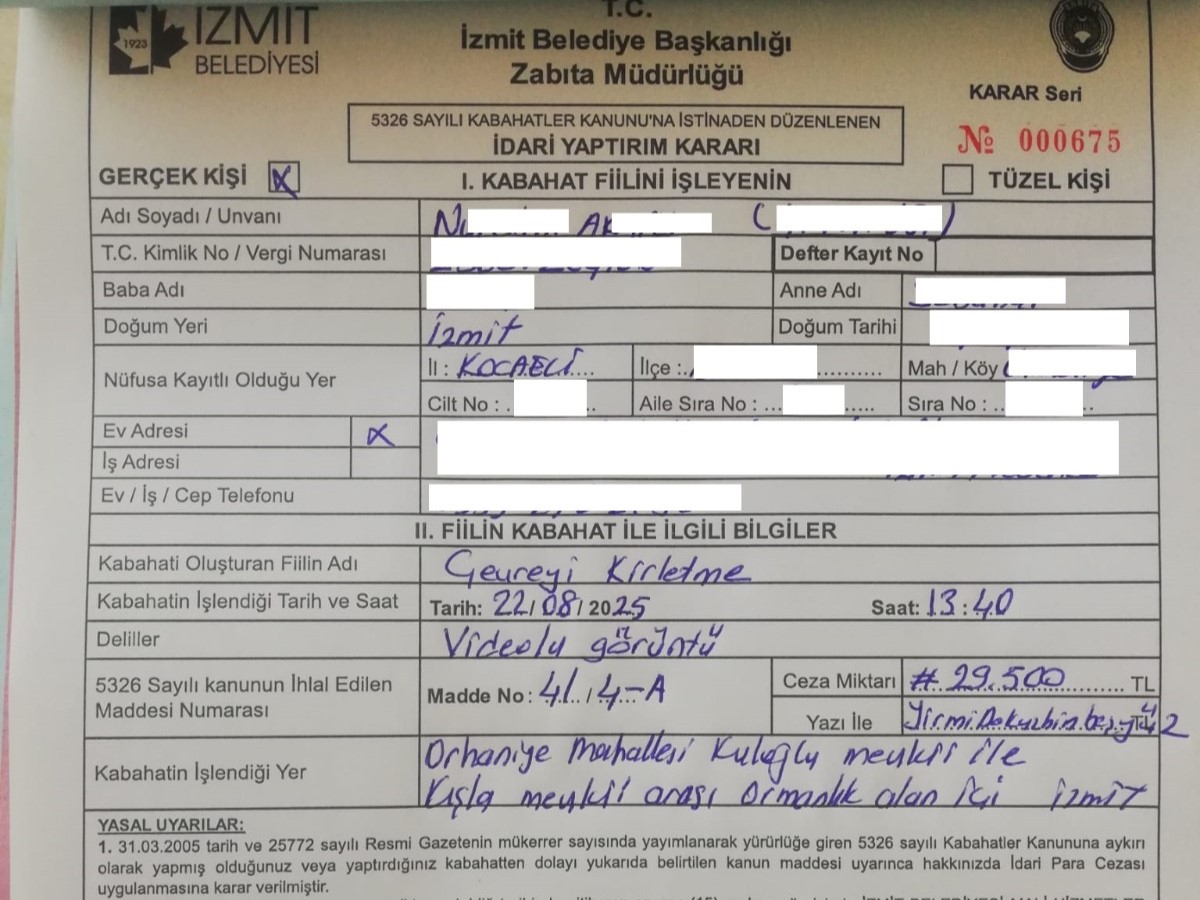 1923
İZMİT
BELEDİYESİ
T.C.
İzmit Belediye Başkanlığı
Zabıta Müdürlüğü
KARAR Seri
№ 000675
5326 SAYILI KABAHATLER KANUNU'NA İSTİNADEN DÜZENLENEN
İDARİ YAPTIRIM KARARI
GERÇEK KİŞİ X
I. KABAHAT FİİLİNİ İŞLEYENİN
TÜZEL KİŞİ
Adı Soyadı / Unvanı
T.C. Kimlik No / Vergi Numarası
Defter Kayıt No
Baba Adı
Anne Adı
Doğum Yeri İzmit
Doğum Tarihi
Nüfusa Kayıtlı Olduğu Yer
İl : KOCAELİ....
İlçe :..
Mah / Köy
Cilt No : .
Aile Sıra No : ...
Sıra No : ..
Ev Adresi X
İş Adresi
Ev / İş / Cep Telefonu
II. FİİLİN KABAHAT İLE İLGİLİ BİLGİLER
Kabahati Oluşturan Fiilin Adı Çevreyi Kirletme
Kabahatin İşlendiği Tarih ve Saat Tarih: 22/08/2025 Saat: 13:40
Deliller Videolu görüntü
5326 Sayılı kanunun İhlal Edilen
Maddesi Numarası
Madde No: 41./4-A
Ceza Miktarı # 29.500 TL
Yazı İle
Kabahatin İşlendiği Yer
Orhaniye Mahallesi Kuloğlu mevkii ile
Kışla mevkii arası Ormanlık alan içi İzmit
YASAL UYARILAR:
1. 31.03.2005 tarih ve 25772 sayılı Resmi Gazetenin mükerrer sayısında yayımlanarak yürürlüğe giren 5326 sayılı Kabahatler Kanununa aykırı
olarak yapmış olduğunuz veya yaptırdığınız kabahatten dolayı yukarıda belirtilen kanun maddesi uyarınca hakkınızda İdari Para Cezası
uygulanmasına karar verilmiştir.